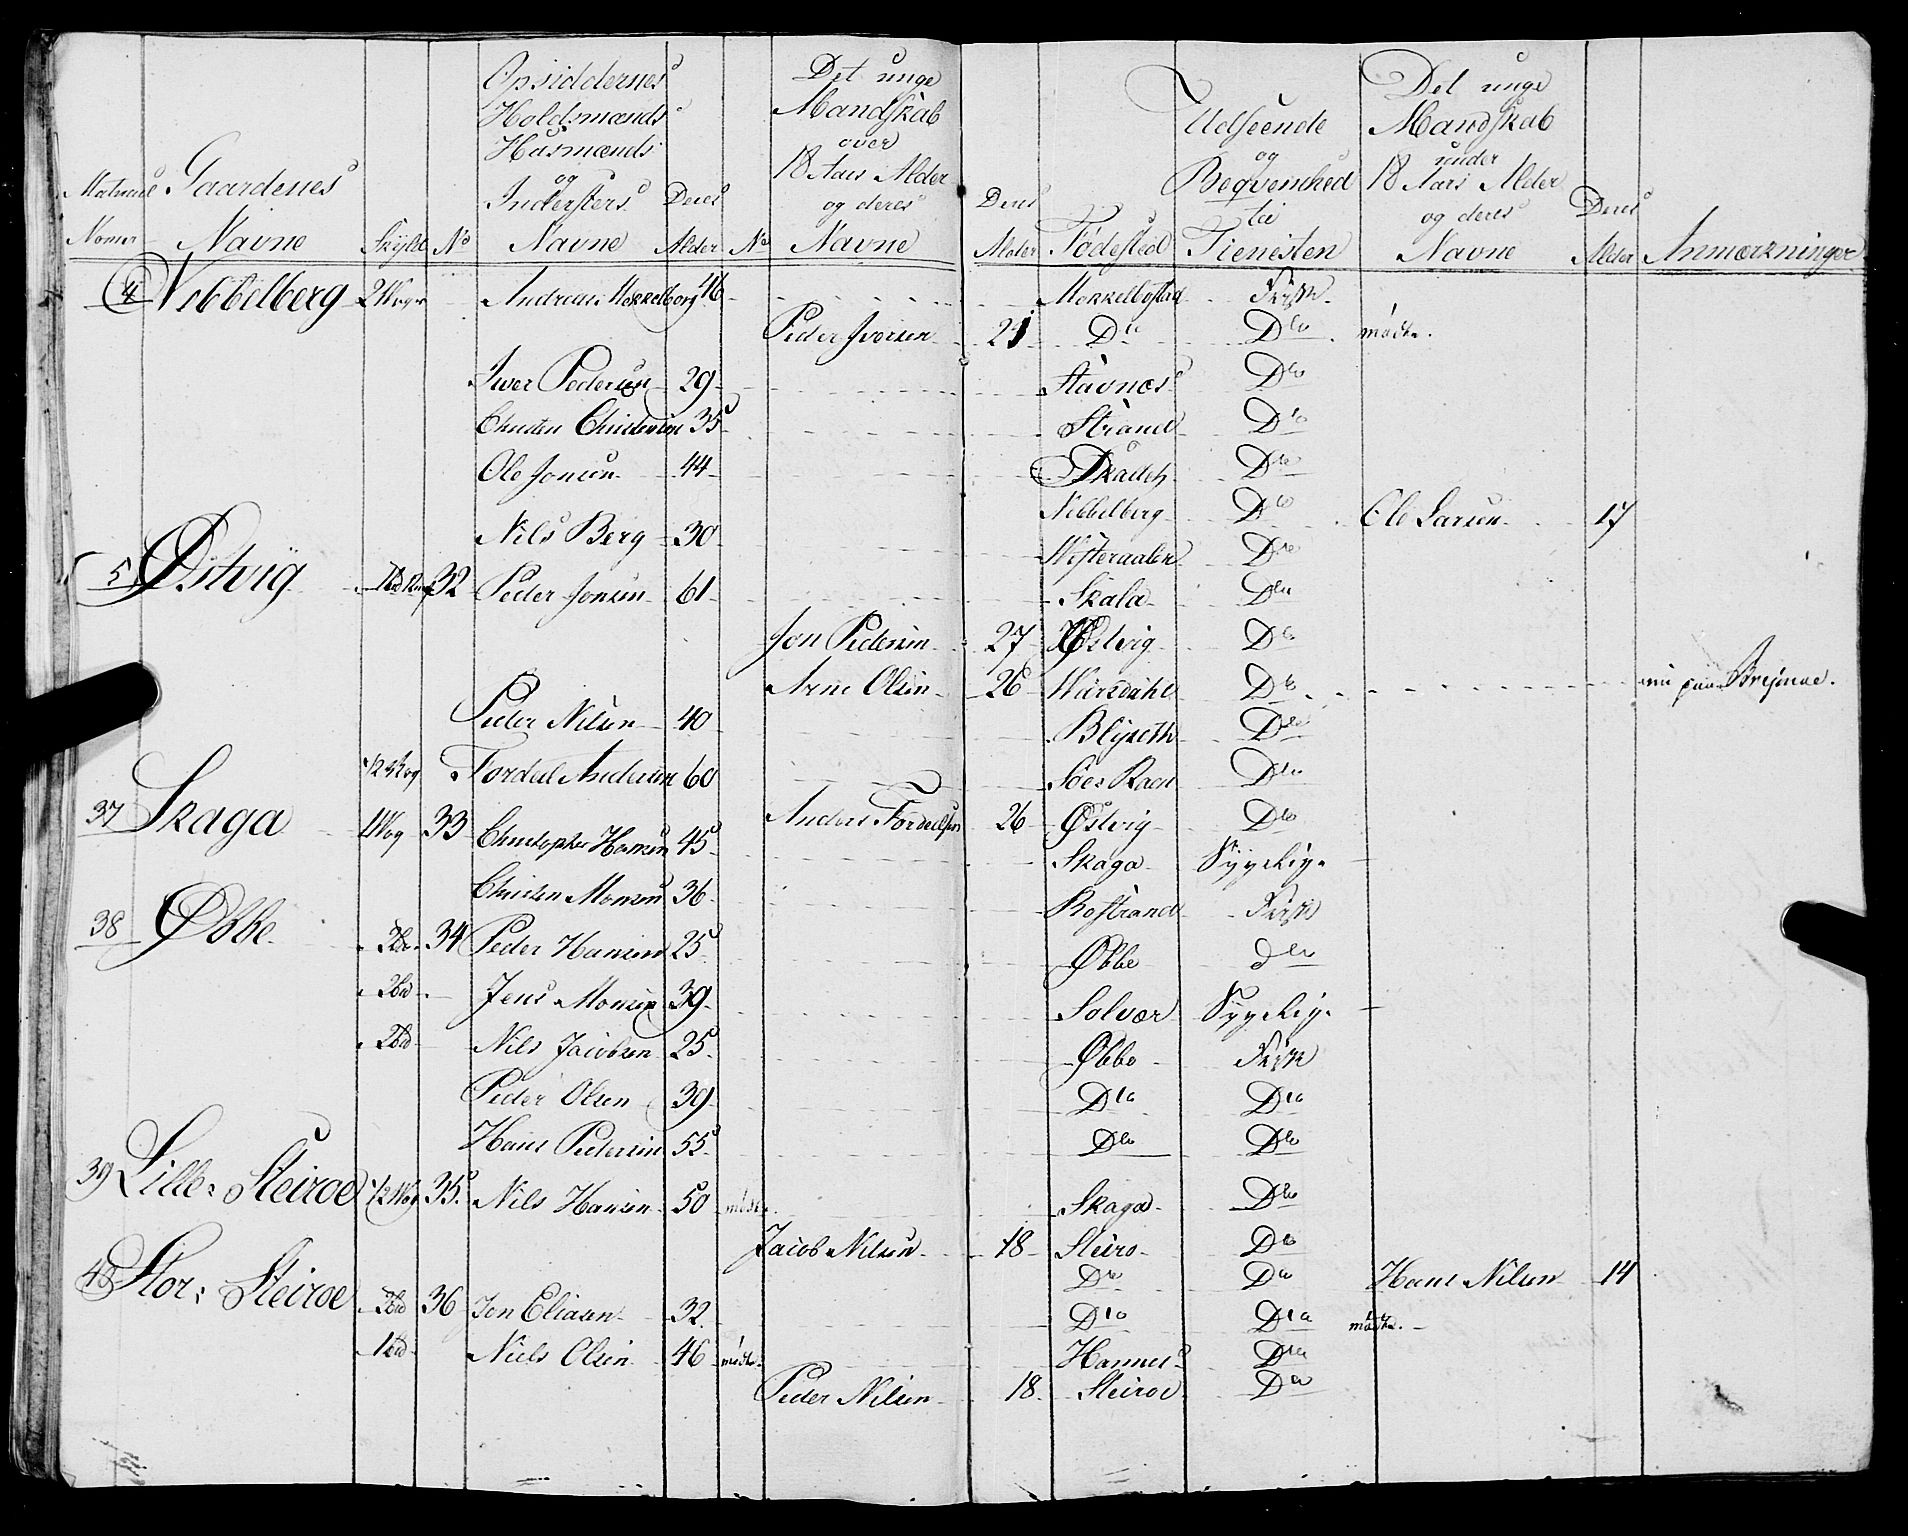 Matricul Nomer
Gaardenes Navne
Skyld
No
Opsiddernes Holdsmænds Husmænds og Indersters Navne
Deres Alder
No
Det unge Mandskab over 18 Aars Alder og deres Navne
Deres Alder
Födested
Udseende og Beqvemhed til Tienesten
Det unge Mandskab under 18 Aars Alder og deres Navne
Deres Alder
Anmærkninger
4 Nibbelberg 2 Wog Andreas 46 Mekkelbostad Frisk
Peder Iversen 21 Do Dto mödte.
Iwer Pedersen 29 Stavnes Dto
Christen Christensen 35 Strand Dto
Ole Jonsen 44 Dto
Nibbelberg Dto Ole Larsen 17
Nils Berg 30 Westeraalen Dto
5 Østvig 32 Peder Jonsen 61 Skala Dto
Jon Pedersen 27 Østvig Dto
Arne Olsen 26 Dto
Peder Nilsen 40 Dto
1/2 Wog Tordeel Andersen 60 Dto
Anders Tordeelsen 26 Østvig Dto
37 Skaga 1 Wog 33 Christopher Hansen 45 Skaga Sygelig
Christen Monsen 36 Rostrand Frisk
38 Øbbe 34 Peder Hansen 25 Øbbe dto
Jens Monsen 39 Solvær Sygelig
2bd Nils Jacobsen 25 Øbbe Frisk
Peder Olsen 39 Dto Dto
Hans Pedersen 55 Dto Dto
39 Lille Steiroe 1/2 Wog 35 Nils Hansen 50 mödte Skaga Dto
Jacob Nilsen 18 Steiro Dto
Do Do Hans Nilsen 14
40 Stor Steiroe 2bd 36 Jon Eliasen 32 Dto Dto mödte.
1bd Niels Olsen 46 mödte Hannes Dto
Peder Nilsen 18 Steiroe Do